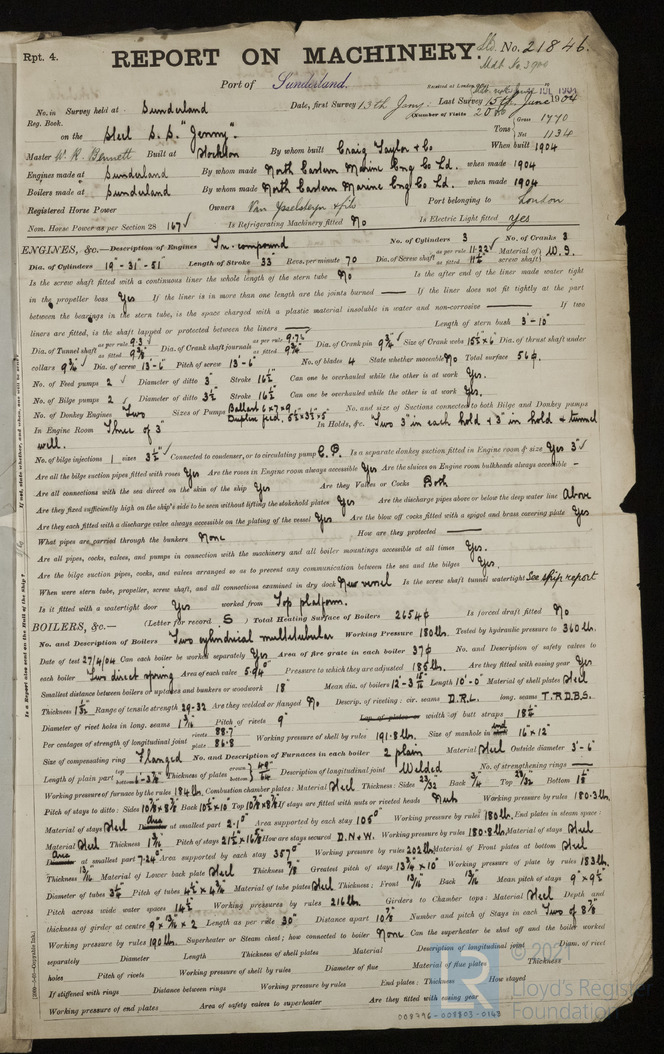 Rpt. 4.
REPORT ON MACHINERY.
Sld. No. 21846.
Mdb. No 3900
Port of Sunderland.
Received at London
No. in Survey held at Sunderland
Date, first Survey 13th Jany: Last Survey 15th June 1904
Reg. Book.
(Number of Visits
on the Steel S.S. "Jenny".
Tons Gross 1770
Net 1134
Master W. R. Bennett Built at Stockton By whom built Craig Taylor & Co When built 1904
Engines made at Sunderland By whom made North Eastern Marine Eng Co Ld. when made 1904
Boilers made at Sunderland By whom made North Eastern Marine Eng Co Ld. when made 1904
Registered Horse Power Owners Van Ysselsteyn & fils Port belonging to London
Nom. Horse Power as per Section 28 167 Is Refrigerating Machinery fitted No Is Electric Light fitted Yes
ENGINES, &c.—Description of Engines Tri-compound No. of Cylinders 3 No. of Cranks 3
Dia. of Cylinders 19"-31"-51" Length of Stroke 33" Revs. per minute 70 Dia. of Screw shaft as per rule 11.22 as fitted 11½ Material of screw shaft W.I.
Is the screw shaft fitted with a continuous liner the whole length of the stern tube No Is the after end of the liner made water tight
in the propeller boss Yes If the liner is in more than one length are the joints burned — If the liner does not fit tightly at the part
between the bearings in the stern tube, is the space charged with a plastic material insoluble in water and non-corrosive — If two
liners are fitted, is the shaft lapped or protected between the liners — Length of stern bush 3'-10"
Dia. of Tunnel shaft as per rule 9.3 as fitted 9⅜ Dia. of Crank shaft journals as per rule 9.76 as fitted 9¾ Dia. of Crank pin 9¾ Size of Crank webs 15½ x 6 Dia. of thrust shaft under
collars 9¾ Dia. of screw 13'-6" Pitch of screw 13'-6" No. of blades 4 State whether moveable No Total surface 56 ф.
No. of Feed pumps 2 Diameter of ditto 3" Stroke 16½ Can one be overhauled while the other is at work Yes.
No. of Bilge pumps 2 Diameter of ditto 3½ Stroke 16½ Can one be overhauled while the other is at work Yes.
No. of Donkey Engines Two Sizes of Pumps Ballast 6 x 7 x 9. Duplex feed, 5½ x 3½ x 5 No. and size of Suctions connected to both Bilge and Donkey pumps
In Engine Room Three of 3" In Holds, &c. Two 3" in each hold & 3" in hold & tunnel
well.
No. of bilge injections 1 sizes 3½ Connected to condenser, or to circulating pump C.P. Is a separate donkey suction fitted in Engine room & size Yes 3"
Are all the bilge suction pipes fitted with roses Yes Are the roses in Engine room always accessible Yes Are the sluices on Engine room bulkheads always accessible —
Are all connections with the sea direct on the skin of the ship Yes Are they Valves or Cocks Both
Are they fixed sufficiently high on the ship's side to be seen without lifting the stokehold plates Yes Are the discharge pipes above or below the deep water line Above
Are they each fitted with a discharge valve always accessible on the plating of the vessel Yes Are the blow off cocks fitted with a spigot and brass covering plate Yes
What pipes are carried through the bunkers None How are they protected —
Are all pipes, cocks, valves, and pumps in connection with the machinery and all boiler mountings accessible at all times Yes.
Are the bilge suction pipes, cocks, and valves arranged so as to prevent any communication between the sea and the bilges Yes.
When were stern tube, propeller, screw shaft, and all connections examined in dry dock New vessel Is the screw shaft tunnel watertight See ship report
Is it fitted with a watertight door Yes worked from Top platform.
BOILERS, &c.— (Letter for record S) Total Heating Surface of Boilers 2654 ф Is forced draft fitted No
No. and Description of Boilers Two cylindrical multitubular Working Pressure 180 lbs. Tested by hydraulic pressure to 360 lbs.
Date of test 27/4/04 Can each boiler be worked separately Yes Area of fire grate in each boiler 37 ф No. and Description of safety valves to
each boiler Two direct spring Area of each valve 5.94 Pressure to which they are adjusted 185 lbs. Are they fitted with easing gear Yes
Smallest distance between boilers or uptakes and bunkers or woodwork 18" Mean dia. of boilers 12'-3 15/16 Length 10'-0" Material of shell plates Steel
Thickness 1 1/32 Range of tensile strength 29-32 Are they welded or flanged No Descrip. of riveting: cir. seams D.R.L. long. seams T.R.D.B.S.
Diameter of rivet holes in long. seams 1 1/16 Pitch of rivets 9" Lap of plates or width of butt straps 18½
Per centages of strength of longitudinal joint rivets 88.7 plate 86.8 Working pressure of shell by rules 191.8 lbs. Size of manhole in end 16" x 12"
Size of compensating ring Flanged No. and Description of Furnaces in each boiler 2 plain Material Steel Outside diameter 3'-6"
Length of plain part top bottom 6-3⅞ Thickness of plates crown bottom Description of longitudinal joint Welded No. of strengthening rings —
Working pressure of furnace by the rules 184 lbs. Combustion chamber plates: Material Steel Thickness: Sides 23/32 Back ¾ Top 23/32 Bottom
Pitch of stays to ditto: Sides Back Top If stays are fitted with nuts or riveted heads Nuts Working pressure by rules 180.3 lbs.
Material of stays Steel Area at smallest part 2.10" Area supported by each stay 105" Working pressure by rules 180 lbs. End plates in steam space:
Material Steel Thickness Pitch of stays How are stays secured D.N.&W. Working pressure by rules 180.8 lbs. Material of stays Steel
Area at smallest part 7.24" Area supported by each stay 357" Working pressure by rules 202 lbs. Material of Front plates at bottom Steel
Thickness 13/16 Material of Lower back plate Steel Thickness ⅞ Greatest pitch of stays 13¾ x 10" Working pressure of plate by rules 183 lbs.
Diameter of tubes 3¼ Pitch of tubes 4½ x 4⅜ Material of tube plates Steel Thickness: Front 13/16 Back 13/16 Mean pitch of stays 9" x 9½
Pitch across wide water spaces 14½ Working pressures by rules 216 lbs. Girders to Chamber tops: Material Steel Depth and
thickness of girder at centre 9" x 13/16 x 2 Length as per rule 30" Distance apart 10⅞ Number and pitch of Stays in each Two of 8⅞
Working pressure by rules 190 lbs. Superheater or Steam chest; how connected to boiler None Can the superheater be shut off and the boiler worked
separately Diameter Length Thickness of shell plates Material Description of longitudinal joint Diam. of rivet
holes Pitch of rivets Working pressure of shell by rules Diameter of flue Material of flue plates Thickness
If stiffened with rings Distance between rings Working pressure by rules End plates: Thickness How stayed
Working pressure of end plates Area of safety valves to superheater Are they fitted with easing gear
© 2021
Lloyd's Register
Foundation
008796-008803-0163
Is a Report also sent on the Hull of the Ship?